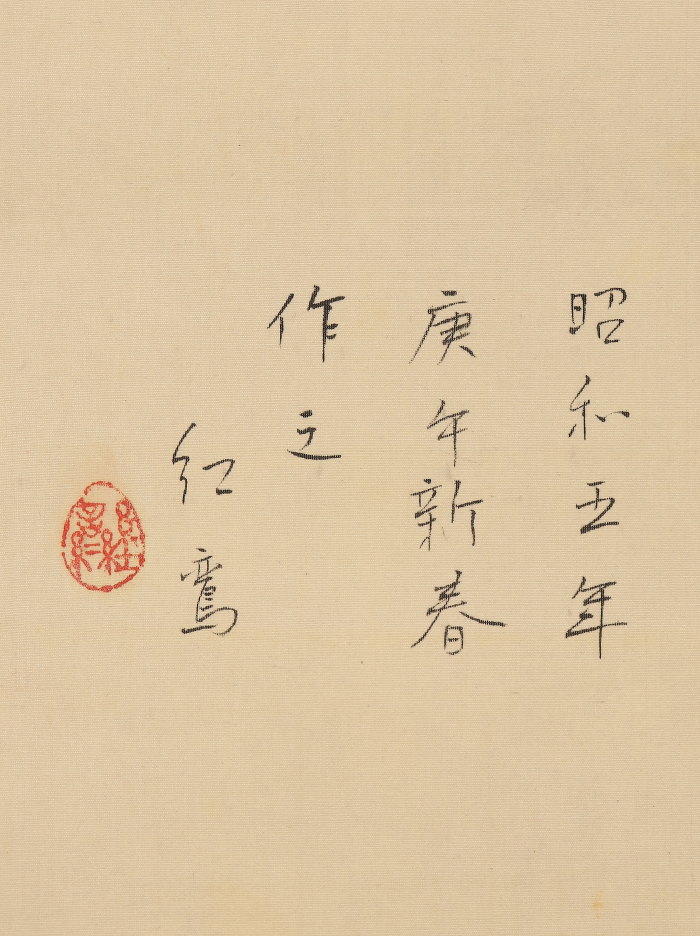 昭和五年
庚午新春
作之
红鸞